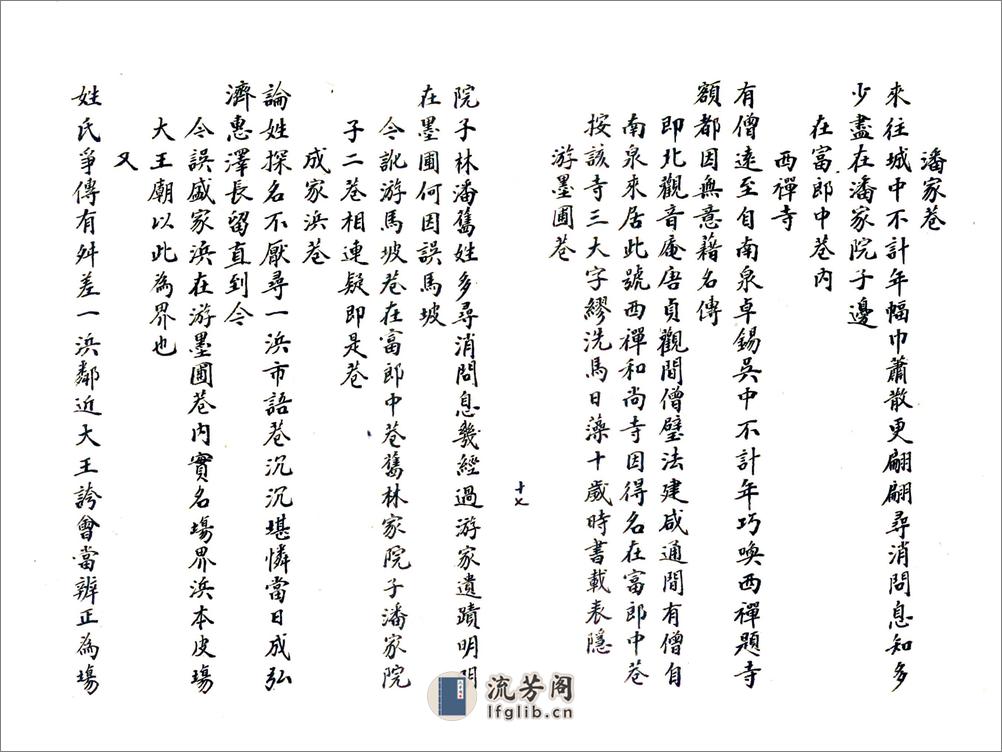 潘家巷
來往城中不計年幅巾蕭散更翩翩尋消問息知多
少盡在潘家院子邊
在富郎中巷内
西禪寺
有僧遠至自南泉卓錫吳中不計年巧喚西禪題寺
額都因無意藉名傳
即北觀音庵唐貞觀間僧璧法建咸通間有僧自
南泉來居此號西禪和尚寺因得名在富郎中巷
按該寺三大字繆洗馬日藻十歲時書載表隱
游墨圃巷
十七
院子林潘舊姓多尋消問息幾經過游家遺蹟明明
在墨圃何因誤馬坡
今訛游馬坡巷在富郎中巷舊林家院子潘家院
子二巷相連疑即是巷
成家浜巷
論姓探名不厭尋一浜市語巷沉沉堪憐當日成弘
濟惠澤長留直到今
今誤盛家浜在游墨圃巷内實名場界浜本皮場
大王廟以此為界也
又
姓氏爭傳有舛差一浜鄰近大王誇會當辨正為場
流芳阁
lfglib.cn